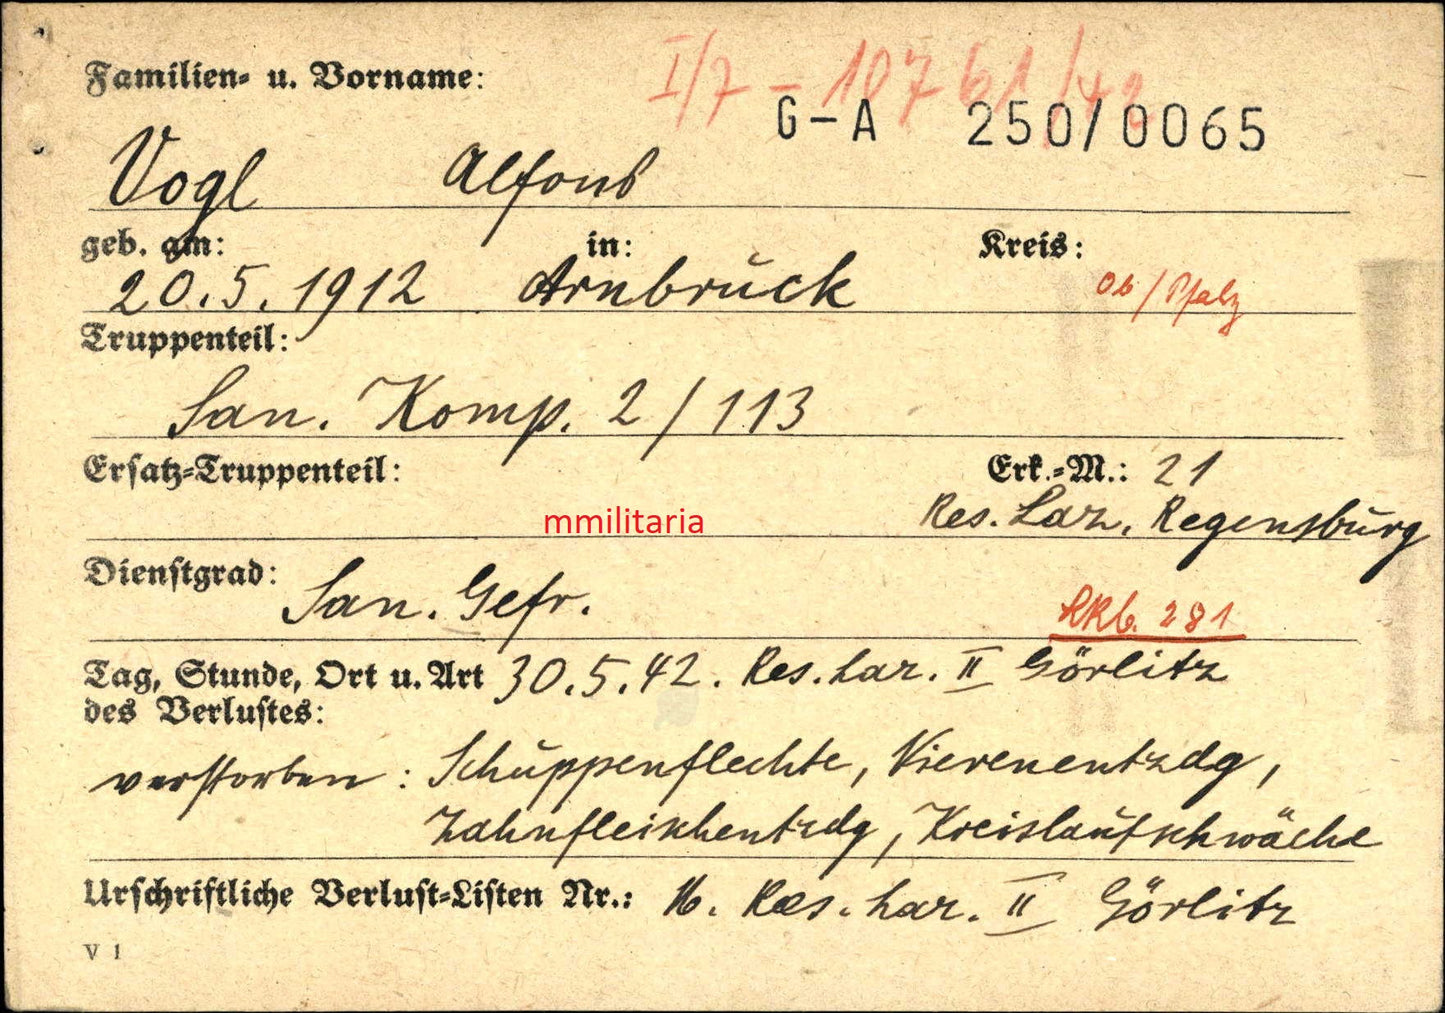 Familien- u. Vorname:
I/7 - 10761/42
G-A 250/0065
Vogl Alfons
geb. am: in: Kreis:
20.5.1912 Arnbruck Ob/Pfalz
Truppenteil:
San. Komp. 2/113
Ersatz-Truppenteil: Erk.-M.: 21
mmilitaria Res. Laz. Regensburg
Dienstgrad:
San. Gefr. RKb. 281
Tag, Stunde, Ort u. Art 30.5.42. Res. Laz. II Görlitz
des Verlustes:
verstorben: Schuppenflechte, Nierenentzdg,
Zahnfleischentzdg, Kreislaufschwäche
Urschriftliche Verlust-Listen Nr.: 16. Res. Laz. II Görlitz
V 1